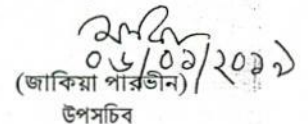 ০৬/০১/২০১৯
(জাকিয়া পারভীন)
উপসচিব